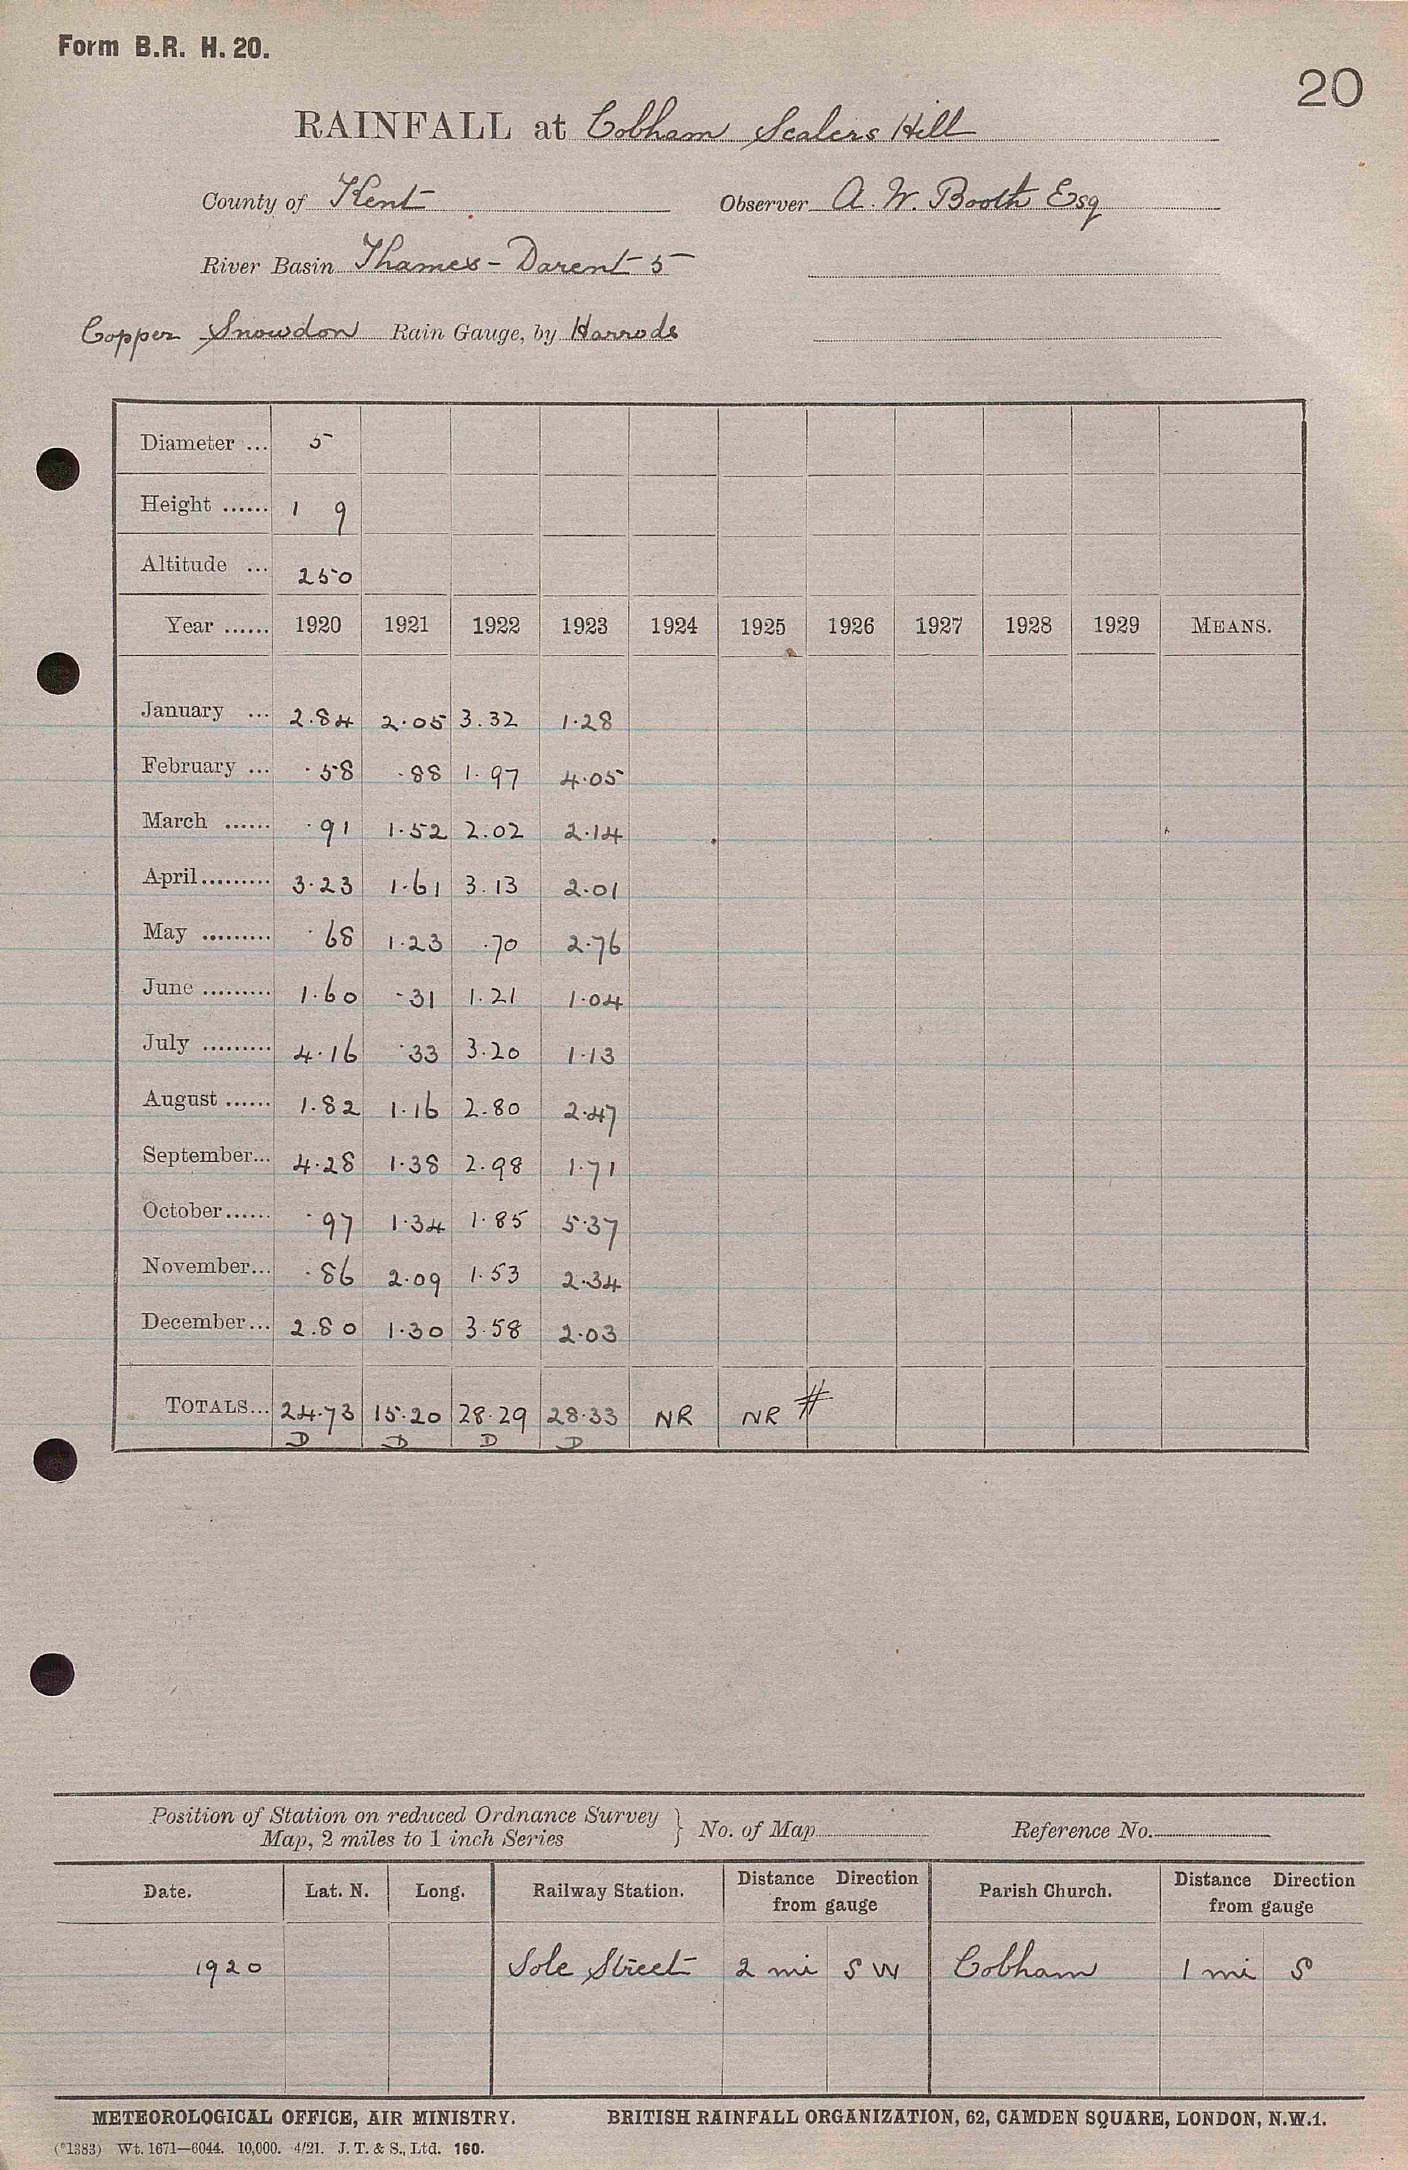 Form B.R. H. 20.
20
RAINFALL at Cobham Scalers Hill
County of Kent Observer A. W. Booth Esq
River Basin Thames - Darent 5
Copper Snowdon Rain Gauge, by Harrods
Diameter ... 5
Height ...... 1 9
Altitude ... 250
Year ...... 1920 1921 1922 1923 1924 1925 1926 1927 1928 1929 MEANS.
January ... 2.84 2.05 3.32 1.28
February ... .58 .88 1.97 4.05
March ...... .91 1.52 2.02 2.14
April......... 3.23 1.61 3.13 2.01
May ......... .68 1.23 .70 2.76
June ......... 1.60 .31 1.21 1.04
July ......... 4.16 .33 3.20 1.13
August ...... 1.82 1.16 2.80 2.47
September... 4.28 1.38 2.98 1.71
October...... .97 1.34 1.85 5.37
November... .86 2.09 1.53 2.34
December... 2.80 1.30 3.58 2.03
TOTALS... 24.73 15.20 28.29 28.33 NR NR #
D D D D
Position of Station on reduced Ordnance Survey
Map, 2 miles to 1 inch Series } No. of Map Reference No.
Date. Lat. N. Long. Railway Station. Distance Direction from gauge Parish Church. Distance Direction from gauge
1920 Sole Street 2 mi S W Cobham 1 mi S
METEOROLOGICAL OFFICE, AIR MINISTRY. BRITISH RAINFALL ORGANIZATION, 62, CAMDEN SQUARE, LONDON, N.W.1.
(*1383) Wt. 1671—6044. 10,000. 4/21. J. T. & S., Ltd. 160.